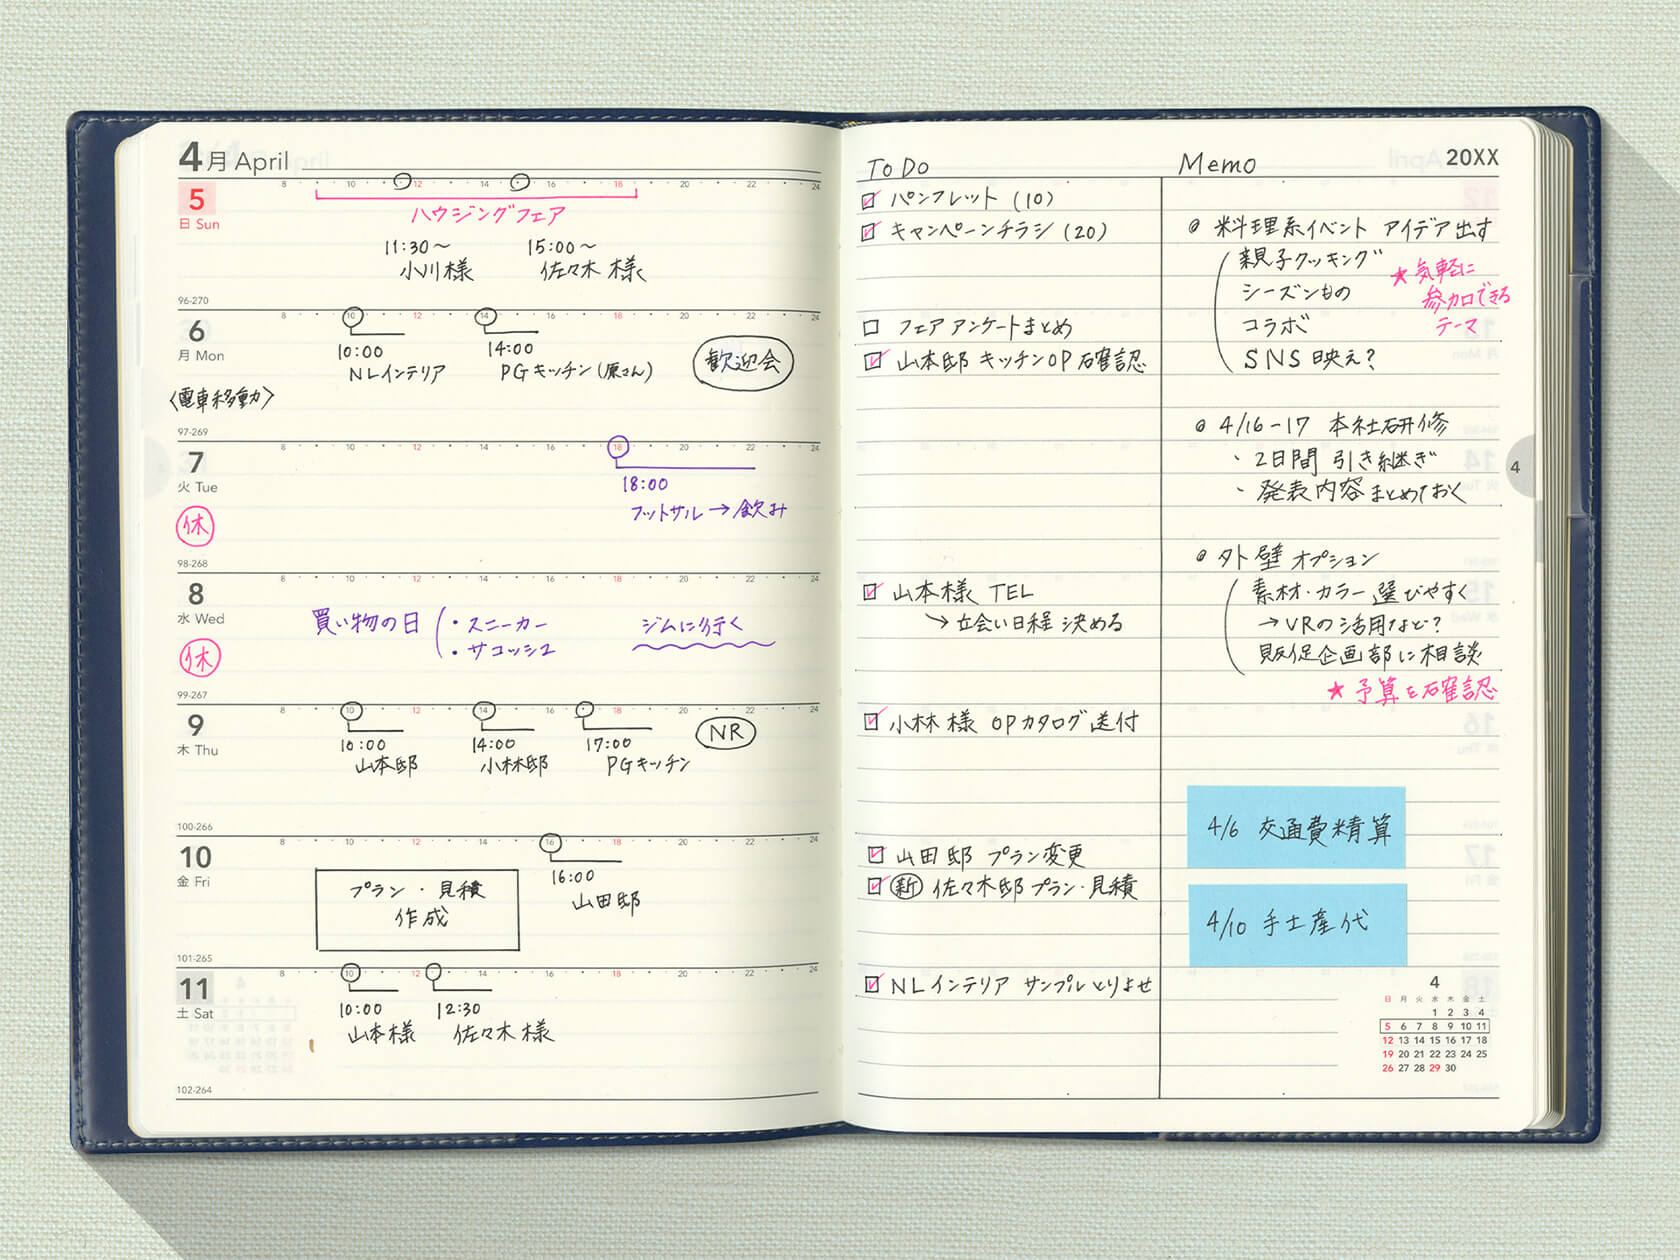 4月 April
8 10 12 14 16 18 20 22 24
5
日 Sun
ハウジングフェア
11:30〜 15:00〜
小川様 佐々木様
96-270
8 10 12 14 16 18 20 22 24
6
月 Mon
10:00 14:00
NLインテリア PGキッチン(原さん)
歓迎会
〈電車移動〉
97-269
8 10 12 14 16 18 20 22 24
7
火 Tue
18:00
フットサル→飲み
休
98-268
8 10 12 14 16 18 20 22 24
8
水 Wed
買い物の日 ・スニーカー
・サコッシュ
ジムに行く
休
99-267
8 10 12 14 16 18 20 22 24
9
木 Thu
10:00 14:00 17:00
山本邸 小林邸 PGキッチン
NR
100-266
8 10 12 14 16 18 20 22 24
10
金 Fri
プラン・見積
作成
16:00
山田邸
101-265
8 10 12 14 16 18 20 22 24
11
土 Sat
10:00 12:30
山本様 佐々木様
102-264
To Do
パンフレット(10)
キャンペーンチラシ(20)
フェアアンケートまとめ
山本邸 キッチンOP確認
山本様 TEL
→立会い日程決める
小林様 OPカタログ送付
山田邸 プラン変更
新 佐々木邸プラン・見積
NLインテリア サンプルとりよせ
Memo
20XX
料理系イベント アイデア出す
親子クッキング
シーズンもの
コラボ
SNS映え?
★気軽に
参加できる
テーマ
4/16-17 本社研修
・2日間 引き継ぎ
・発表内容まとめておく
4
外壁オプション
素材・カラー選びやすく
→VRの活用など?
販促企画部に相談
★予算を確認
4/6 交通費精算
4/10 手土産代
4
日 月 火 水 木 金 土
1 2 3 4
5 6 7 8 9 10 11
12 13 14 15 16 17 18
19 20 21 22 23 24 25
26 27 28 29 30